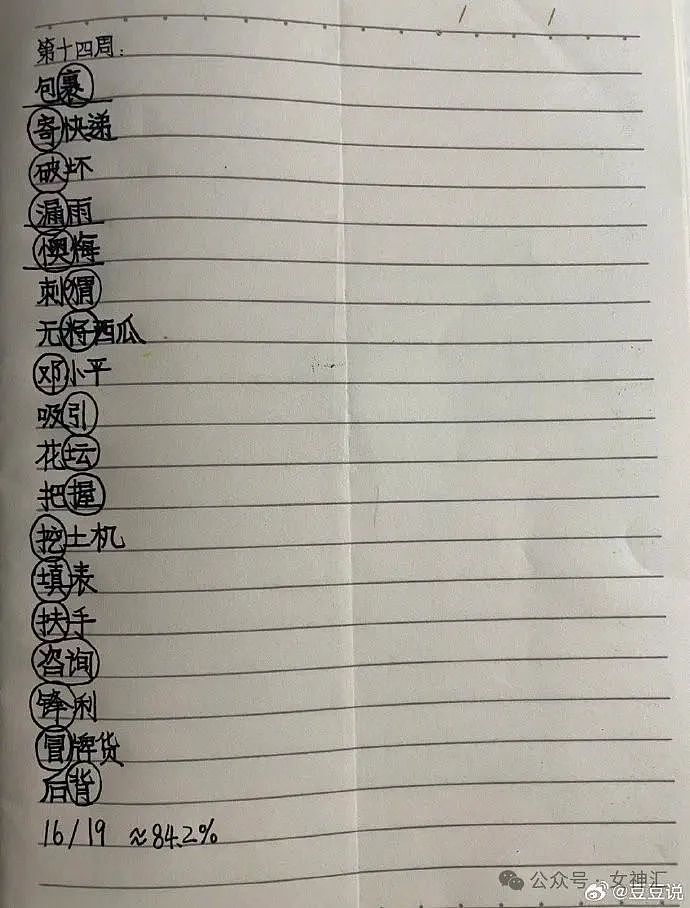 第十四周:
包裹
寄快递
破坏
漏雨
懊悔
刺猬
无籽西瓜
邓小平
吸引
花坛
把握
挖土机
填表
扶手
咨询
锋利
冒牌货
后背
16/19 ≈84.2%
公众号·女神汇
@豆豆说